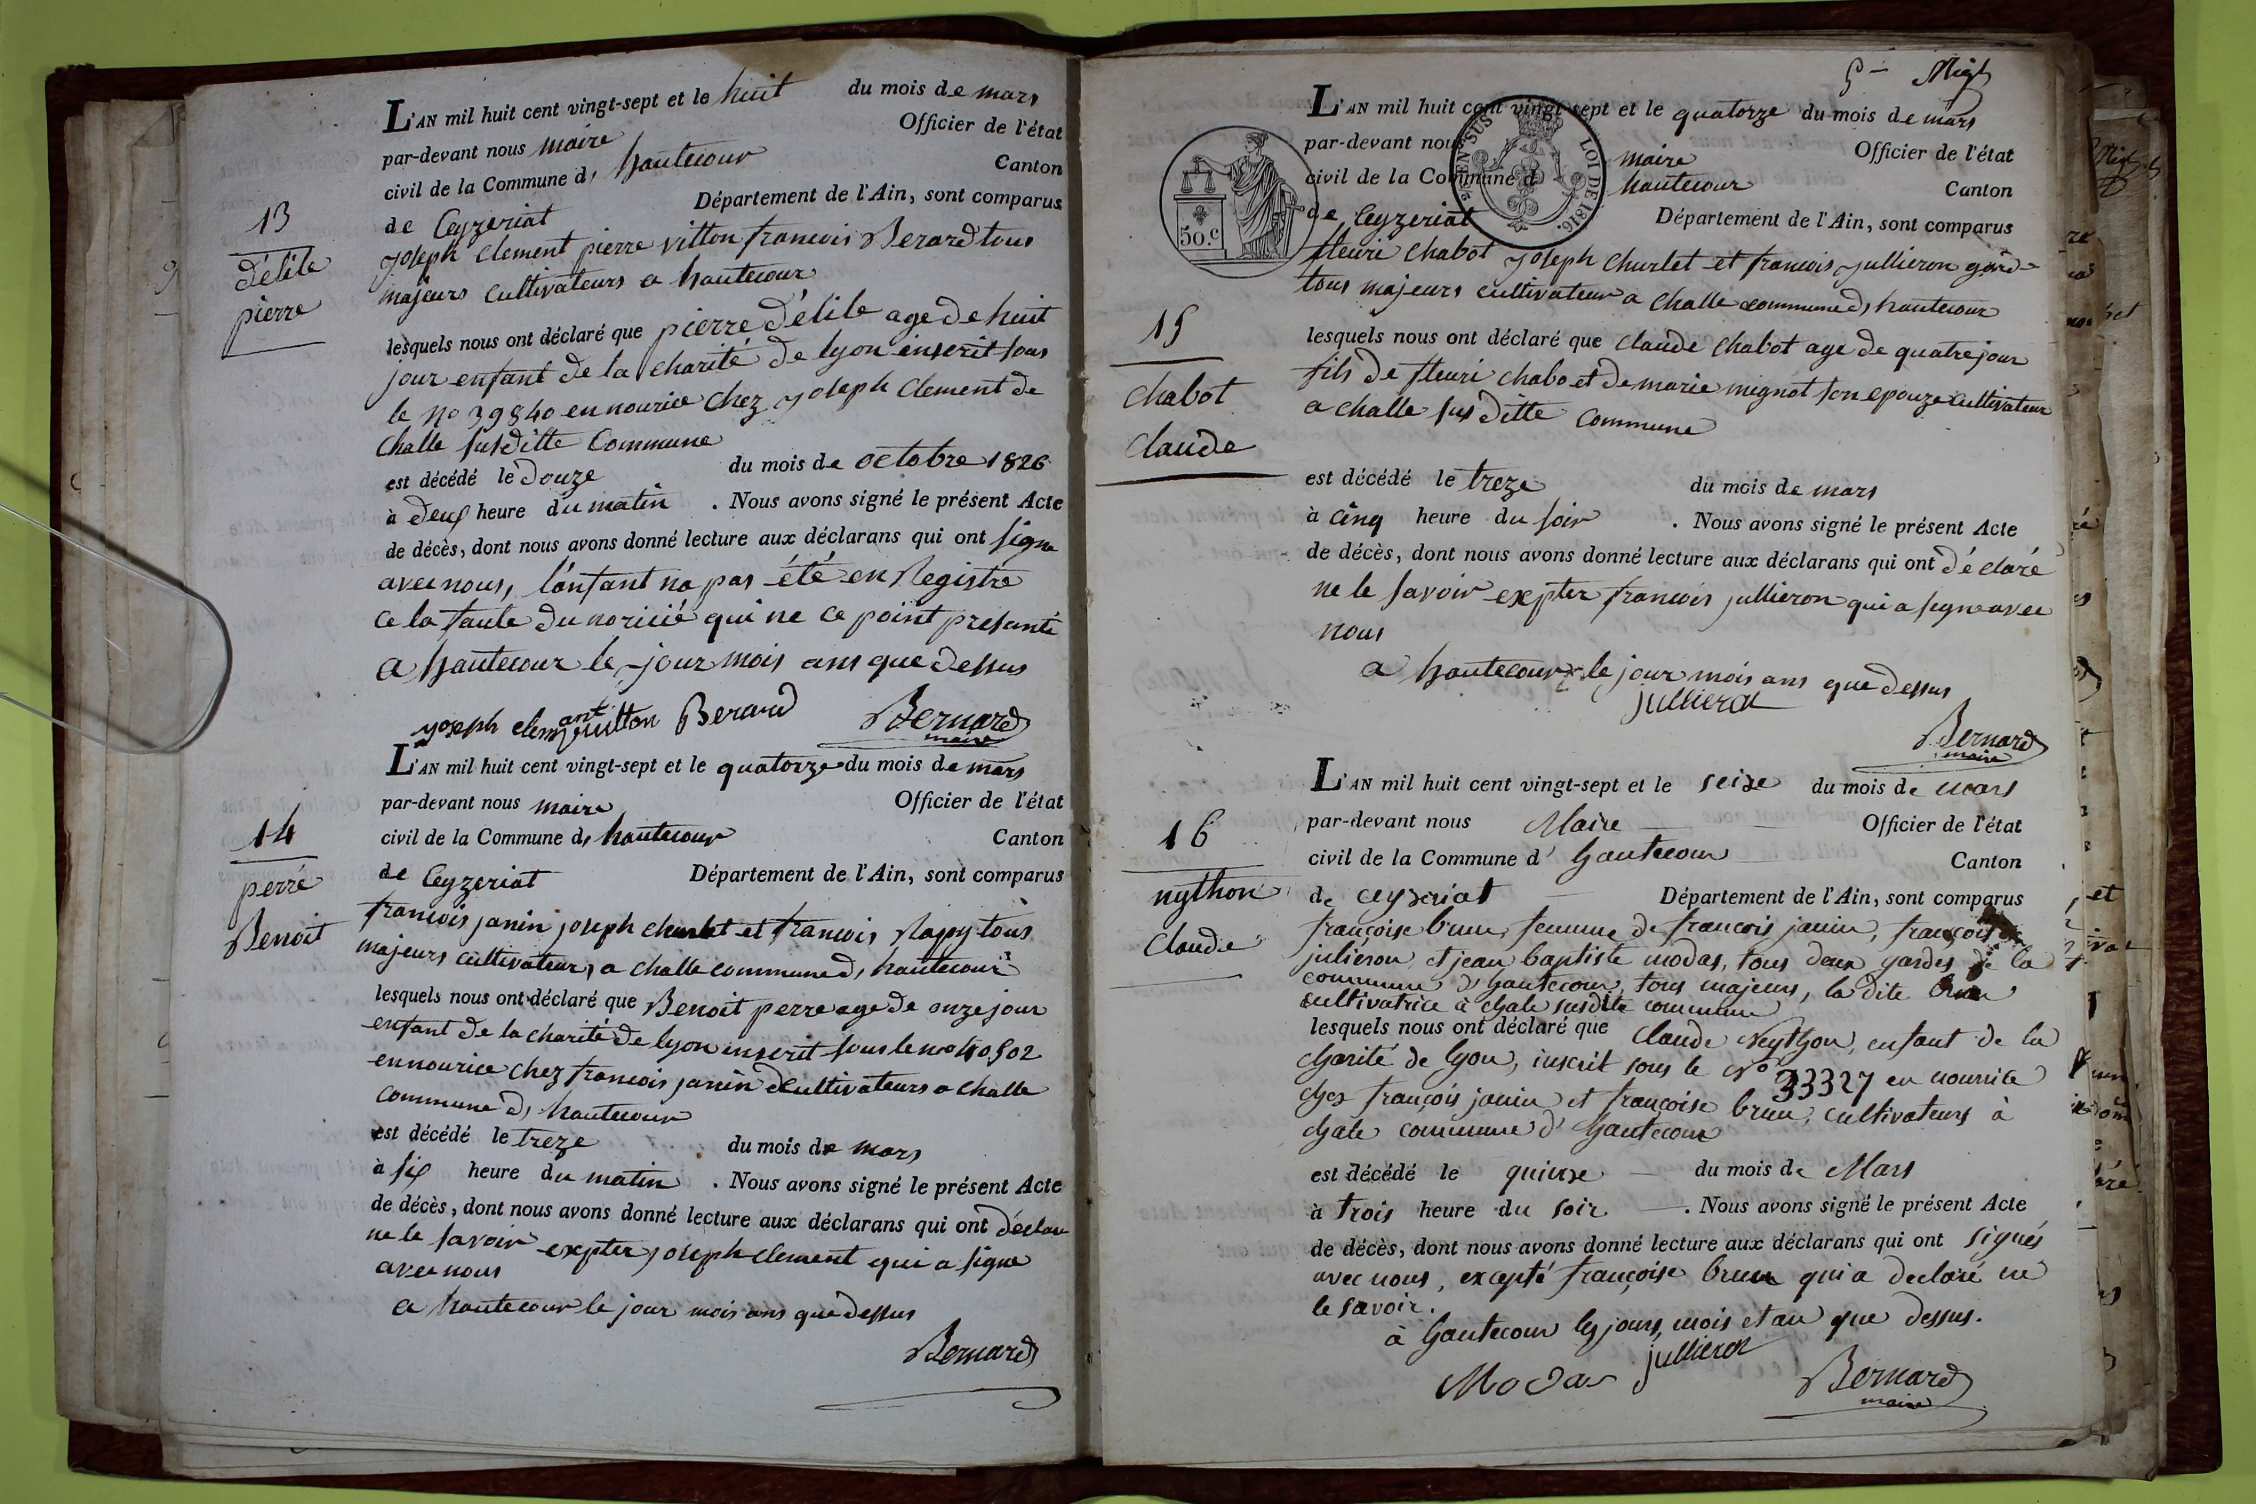 L'AN mil huit cent vingt-sept et le huit du mois de mars
par-devant nous maire Officier de l'état
civil de la Commune d, hautecour Canton
de Ceyzeriat Département de l'Ain, sont comparus
joseph Clement pierre vitton francois Berard tous
majeurs cultivateurs a hautecour
13
délile
pierre
lesquels nous ont déclaré que pierre délile age de huit
jour enfant de la charité de lyon inscrit sous
le No 39840 en nourice chez joseph Clement de
Challe susditte Commune
est décédé le douze du mois de octobre 1826
à deux heure du matin . Nous avons signé le présent Acte
de décès, dont nous avons donné lecture aux déclarans qui ont signe
avec nous, l'anfant na pas été en Registre
ce la faute du noricié qui ne ce point presanté
a hautecour le jour mois ans que dessus
joseph clemant vitton Berard Bernard
maire
L'AN mil huit cent vingt-sept et le quatorze du mois de mars
par-devant nous maire Officier de l'état
civil de la Commune d, hautecour Canton
de Ceyzeriat Département de l'Ain, sont comparus
14
perré
Benoit
francois janin joseph churlet et francois Rapy tous
majeurs cultivateurs a challe commune d, hautecour
lesquels nous ont déclaré que Benoit perre age de onze jour
enfant de la charité de lyon inscrit sous le no 40,502
en nourice chez francois janin cultivateurs a challe
commune d, hautecour
est décédé le treze du mois de mars
à six heure du matin . Nous avons signé le présent Acte
de décès, dont nous avons donné lecture aux déclarans qui ont déclare
ne le savoir expter joseph clement qui a signe
avec nous
a hautecour le jour mois ans que dessus
Bernard
5
L'AN mil huit cent vingt-sept et le quatorze du mois de mars
par-devant nous maire Officier de l'état
civil de la Commune d hautecour Canton
de Ceyzeriat Département de l'Ain, sont comparus
50.c
EN SUS
LOI DE 1816.
fleuri chabot joseph churlet et francois jullieron garde
tous majeurs cultivateur a challe commune d, hautecour
15
chabot
claude
lesquels nous ont déclaré que claude chabot age de quatre jour
fils de fleuri chabo et de marie mignot son epouze cultivateur
a challe sus ditte commune
est décédé le treze du mois de mars
à cinq heure du soir . Nous avons signé le présent Acte
de décès, dont nous avons donné lecture aux déclarans qui ont déclaré
ne le savoir expter francois jullieron qui a signe avec
nous
a hautecour le jour mois ans que dessus
jullieron
Bernard
maire
L'AN mil huit cent vingt-sept et le seize du mois de mars
par-devant nous Maire Officier de l'état
civil de la Commune d' hautecour Canton
de ceyzeriat Département de l'Ain, sont comparus
16
nython
claude
françoise brun, femme de francois janin, françois
juliéron et jean baptiste modas, tous deux gardes de la
commune d'hautecour, tous majeurs, la dite brun
cultivatrice à chale susdite commune
lesquels nous ont déclaré que claude neython, enfant de la
charité de lyon, inscrit sous le No 33327 en nourrice
chez françois janin et françoise brun, cultivateurs à
chale commune d'hautecour
est décédé le quinze du mois de Mars
à trois heure du soir . Nous avons signé le présent Acte
de décès, dont nous avons donné lecture aux déclarans qui ont signés
avec nous, excepté françoise brun qui a declaré ne
le savoir.
à hautecour les jours, mois et an que dessus.
Modas jullieron Bernard
maire